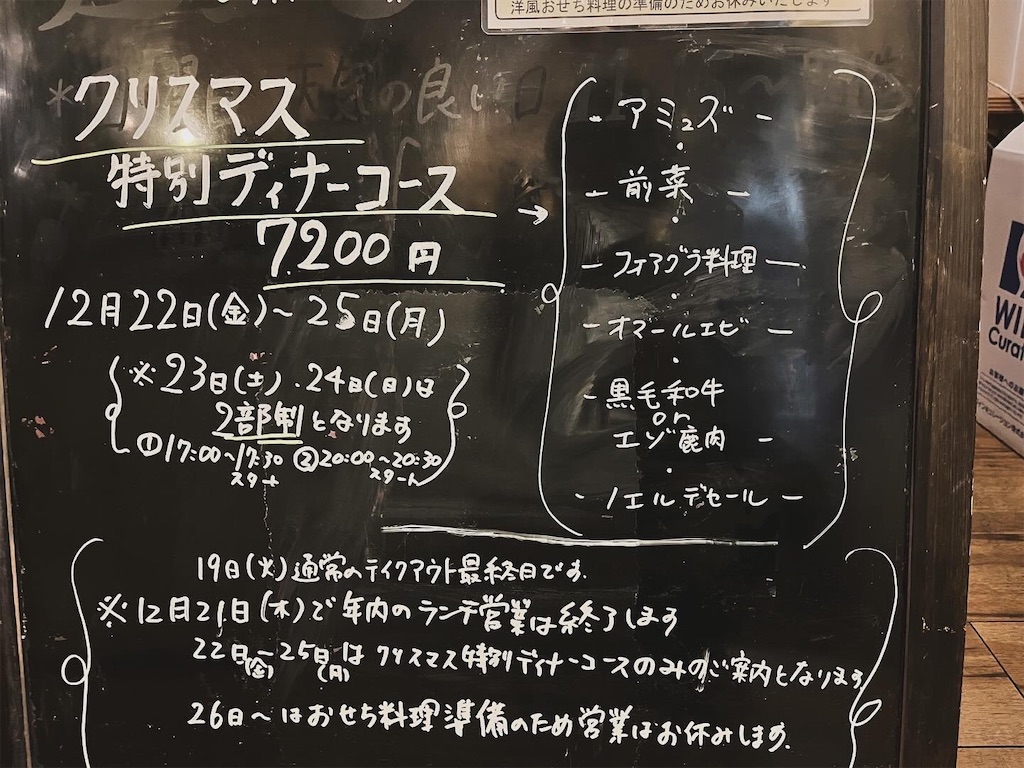 洋風おせち料理の準備のためお休みいたします
*クリスマス
特別ディナーコース
7200円
→
12月22日(金)~25日(月)
※23日(土).24日(日)は
2部制となります
①17:00~17:30 ②20:00~20:30
スタート スタート
- アミューズ -
- 前菜 -
- フォアグラ料理 -
- オマールエビ -
- 黒毛和牛
or
エゾ鹿肉 -
- ノエルデセール -
19日(火)通常のテイクアウト最終日です.
※12月21日(木)で年内のランチ営業は終了します
22日(金)~25日(月)は クリスマス特別ディナーコースのみのご案内となります
26日~はおせち料理準備のため営業はお休みします.
WI
Curat